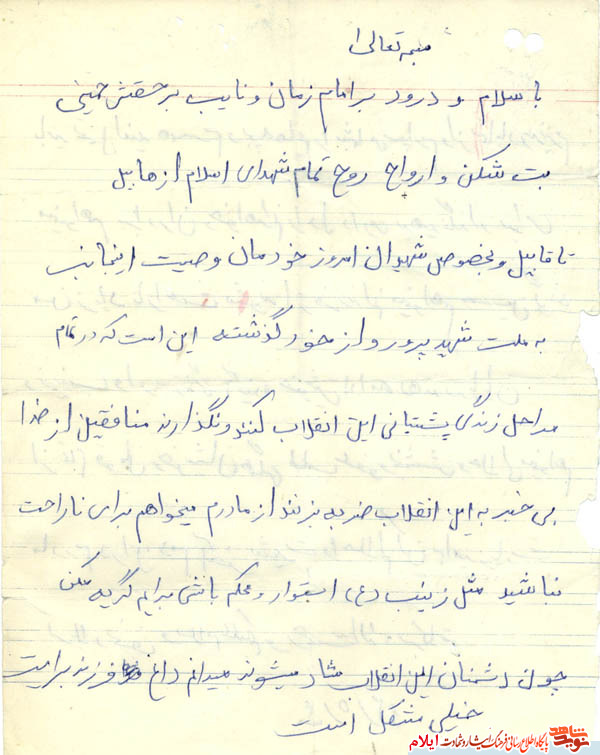 بسمه تعالی
با سلام و درود بر امام زمان و نایب بر حقش خمینی
بت شکن و ارواح روح تمام شهدای اسلام از هابیل
تا قابیل و بخصوص شهیدان امروز خودمان وصیت اینجانب
به ملت شهید پرور و از خود گذشته این است که در تمام
مراحل زندگی پشتیبانی این انقلاب کنند و نگذارند منافقین از خدا
بی خبر به این انقلاب ضربه بزنند از مادرم میخواهم برای ناراحت
نباشید مثل زینب (ع) استوار و محکم باشی برایم گریه مکن
چون دشمنان این انقلاب شاد میشوند میدانم داغ فرزند برایت
خیلی مشکل است
نوید شاهد پایگاه اطلاع رسانی فرهنگ ایثار و شهادت ایلام